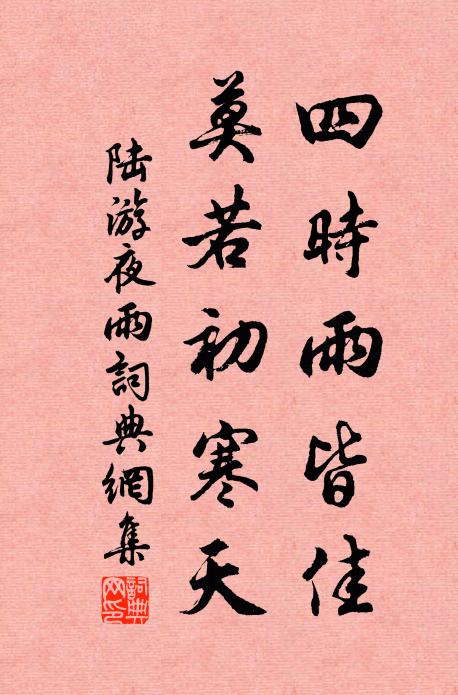 四時雨皆佳
莫若初寒天
陸游夜雨詞典網集
詞典
网印